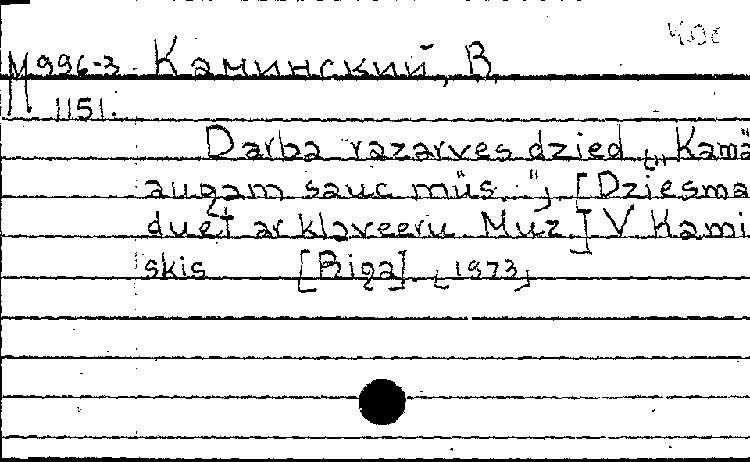 М 996-3 Каминский, В.
1151.
Darba razarves dzied „Kamā
augam sauc mūs..." [Dziesma
duet ar klaveeru. Muz.] V Kami
skis [Riga] [1973]